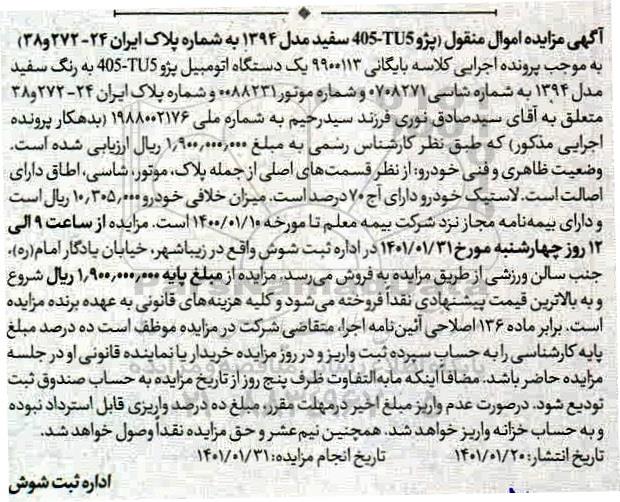 آگهی مزایده اموال منقول (پژو 405-TU5 سفید مدل ۱۳۹۴ به شماره پلاک ایران ۲۴-۲۷۲و۳۸)
به موجب پرونده اجرایی کلاسه بایگانی ۹۹۰۰۱۱۳ یک دستگاه اتومبیل پژو 405-TU5 به رنگ سفید
مدل ۱۳۹۴ به شماره شاسی ۰۷۰۸۲۷۱ و شماره موتور ۰۰۸۸۲۳۱ و شماره پلاک ایران ۲۴-۲۷۲و۳۸
متعلق به آقای سیدصادق نوری فرزند سیدرحیم به شماره ملی ۱۹۸۸۰۰۲۱۷۶ (بدهکار پرونده
اجرایی مذکور) که طبق نظر کارشناس رسمی به مبلغ ۱,۹۰۰,۰۰۰,۰۰۰ ریال ارزیابی شده است.
وضعیت ظاهری و فنی خودرو: از نظر قسمت‌های اصلی از جمله پلاک، موتور، شاسی، اطاق دارای
اصالت است. لاستیک خودرو دارای آج ۷۰ درصد است. میزان خلافی خودرو ۱۰,۳۰۵,۰۰۰ ریال است
و دارای بیمه‌نامه مجاز نزد شرکت بیمه معلم تا مورخه ۱۴۰۰/۰۱/۱۰ است. مزایده از ساعت ۹ الی
۱۲ روز چهارشنبه مورخ ۱۴۰۱/۰۱/۳۱ در اداره ثبت شوش واقع در زیباشهر، خیابان یادگار امام(ره)،
جنب سالن ورزشی از طریق مزایده به فروش می‌رسد. مزایده از مبلغ پایه ۱,۹۰۰,۰۰۰,۰۰۰ ریال شروع
و به بالاترین قیمت پیشنهادی نقداً فروخته می‌شود و کلیه هزینه‌های قانونی به عهده برنده مزایده
است. برابر ماده ۱۳۶ اصلاحی آئین‌نامه اجرا، متقاضی شرکت در مزایده موظف است ده درصد مبلغ
پایه کارشناسی را به حساب سپرده ثبت واریز و در روز مزایده خریدار یا نماینده قانونی او در جلسه
مزایده حاضر باشد. مضافاً اینکه مابه‌التفاوت ظرف پنج روز از تاریخ مزایده به حساب صندوق ثبت
تودیع شود. درصورت عدم واریز مبلغ اخیر درمهلت مقرر، مبلغ ده درصد واریزی قابل استرداد نبوده
و به حساب خزانه واریز خواهد شد. همچنین نیم‌عشر و حق مزایده نقداً وصول خواهد شد.
تاریخ انتشار: ۱۴۰۱/۰۱/۲۰ تاریخ انجام مزایده: ۱۴۰۱/۰۱/۳۱
اداره ثبت شوش